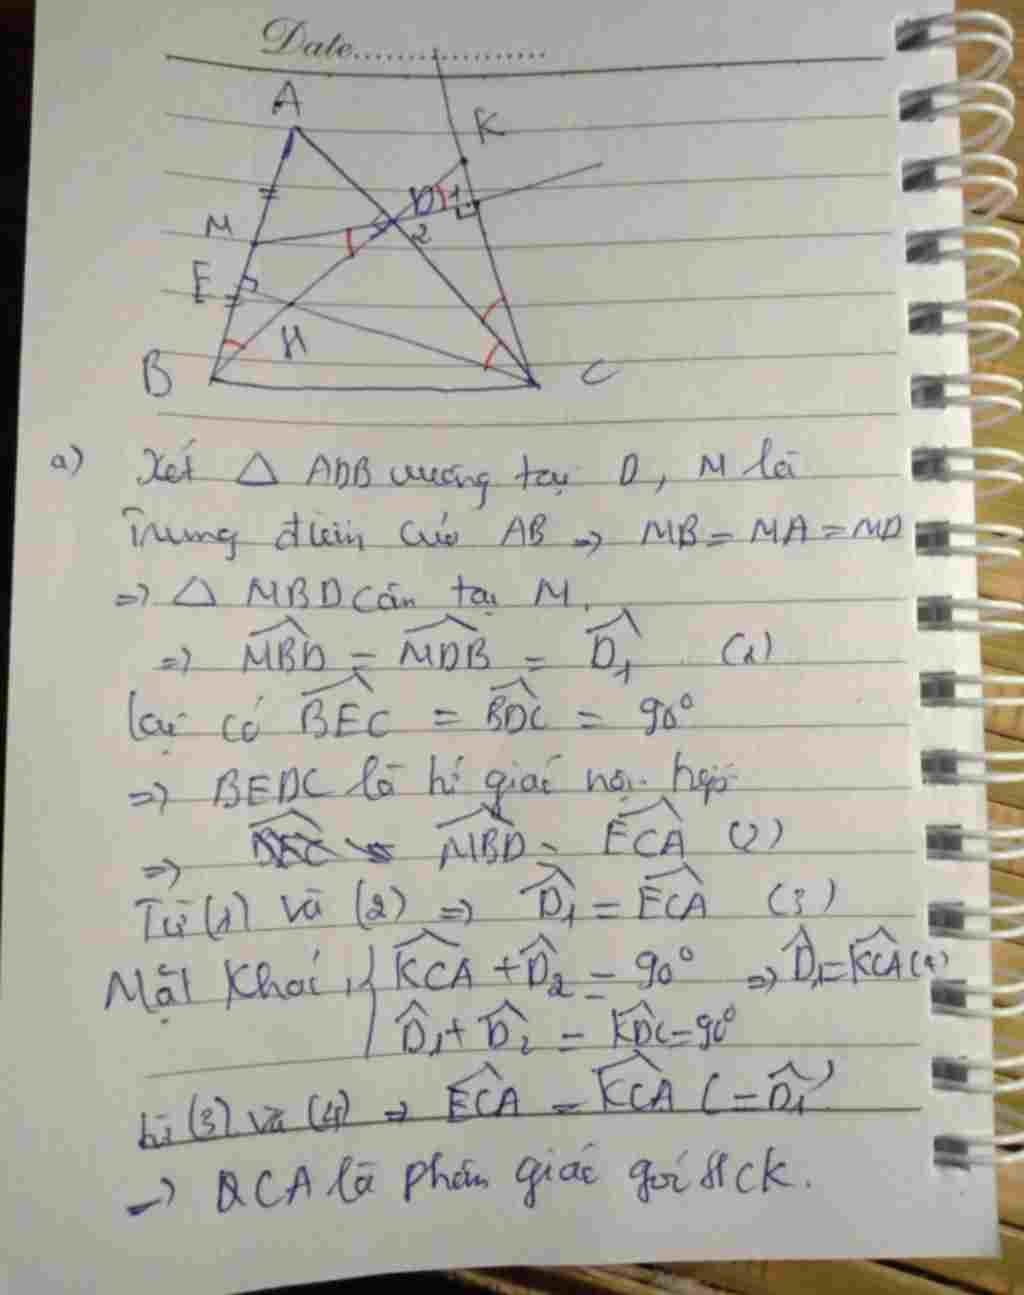 Date
A
K
M
D 1
2
E
H
B
C
a) Xét △ ADB vuông tại D, M là
Trung điểm của AB => MB = MA = MD
=> △ MBD cân tại M.
=> \widehat{MBD} = \widehat{MDB} = \widehat{D}₁ (1)
lại có \widehat{BEC} = \widehat{BDC} = 90°
=> BEDC là tứ giác nội tiếp
=> \widehat{MBD} = \widehat{ECA} (2)
Từ (1) và (2) => \widehat{D}₁ = \widehat{ECA} (3)
Mặt khác, { \widehat{KCA} + \widehat{D}₂ = 90° => \widehat{D}₁ = \widehat{KCA} (4)
\widehat{D}₁ + \widehat{D}₂ = \widehat{KDC} = 90°
từ (3) và (4) => \widehat{ECA} = \widehat{KCA} (= \widehat{D}₁)
=> CA là phân giác góc HCK.